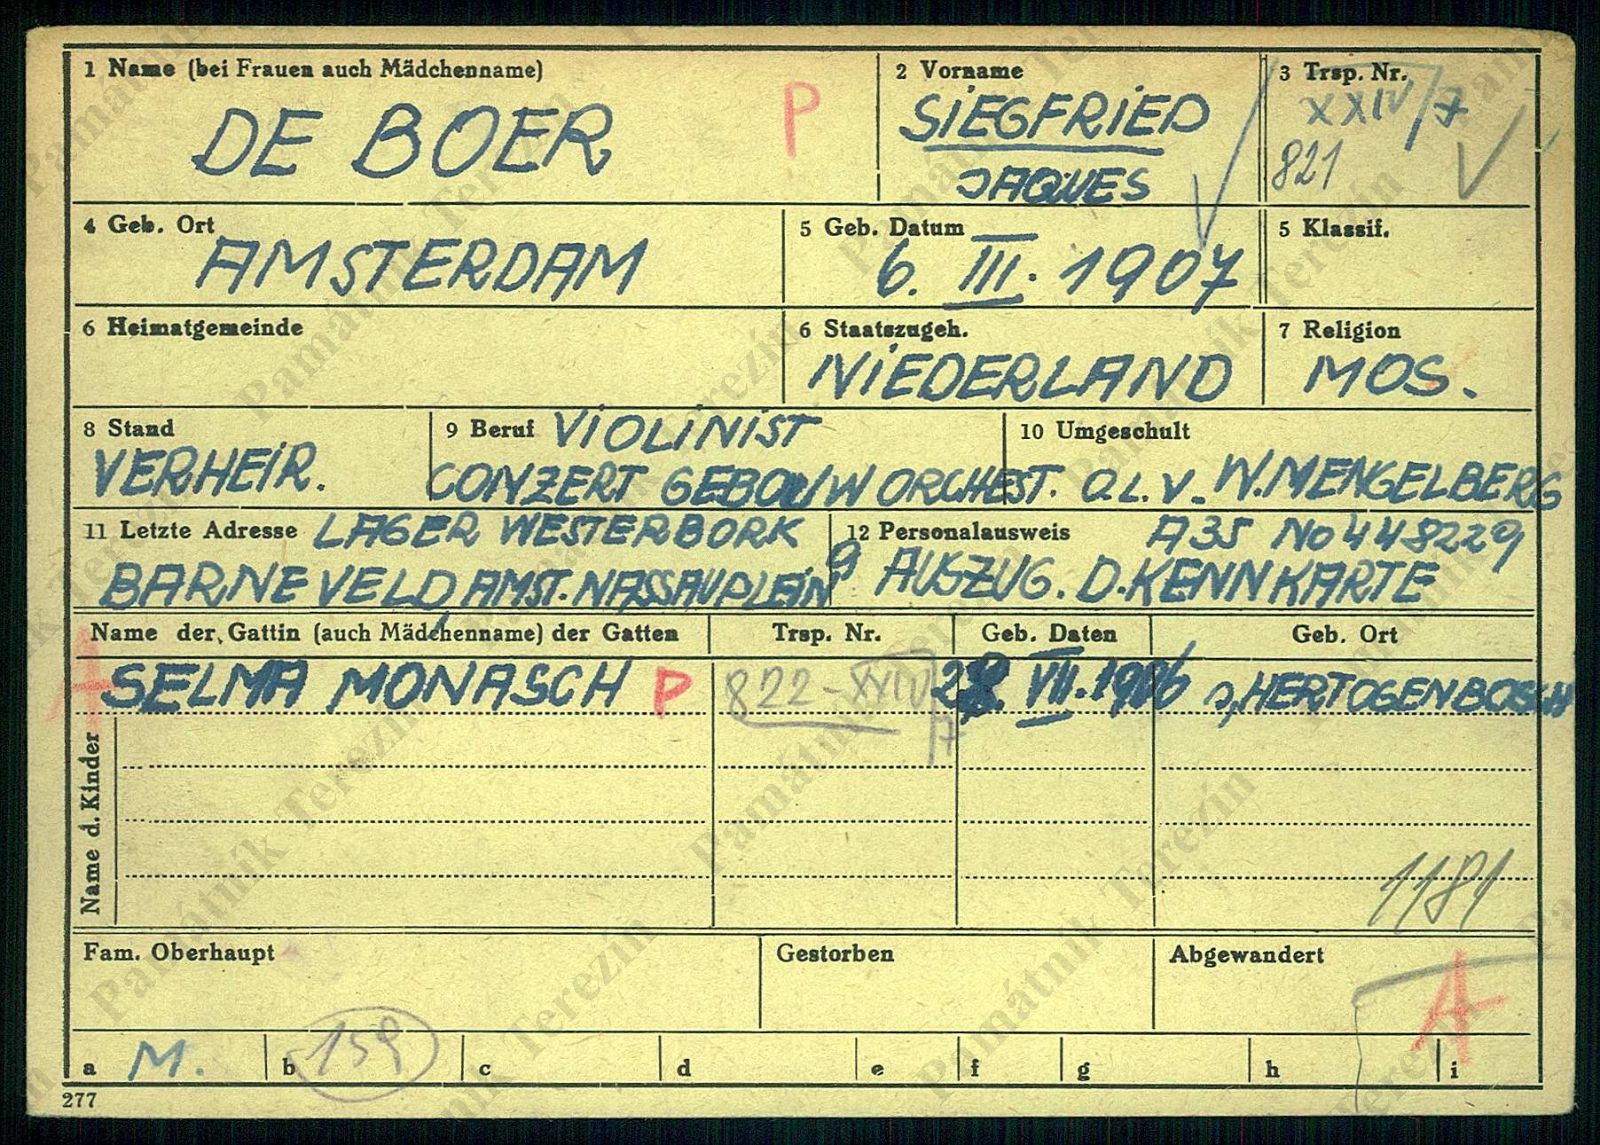 1 Name (bei Frauen auch Mädchenname)
DE BOER
P
2 Vorname
SIEGFRIED
JAQUES
3 Trsp. Nr.
XXIV/7
821
4 Geb. Ort
AMSTERDAM
5 Geb. Datum
6. III. 1907
5 Klassif.
6 Heimatgemeinde
6 Staatszugeh.
NIEDERLAND
7 Religion
MOS.
8 Stand
VERHEIR.
9 Beruf VIOLINIST
CONZERT GEBOUW ORCHEST. O.L.V. W.MENGELBERG
10 Umgeschult
11 Letzte Adresse LAGER WESTERBORK
BARNEVELD, AMST. NASSAUPLEIN 9
12 Personalausweis A35 No 448229
AUSZUG. D. KENNKARTE
Name der Gattin (auch Mädchenname) der Gatten
Trsp. Nr.
Geb. Daten
Geb. Ort
SELMA MONASCH P
822-XXIV/7
VII.
s,HERTOGENBOSCH
Name d. Kinder
1181
Fam. Oberhaupt
Gestorben
Abgewandert
A
a M.
b 159
c
d
e
f
g
h
i
277
Památník Terezín